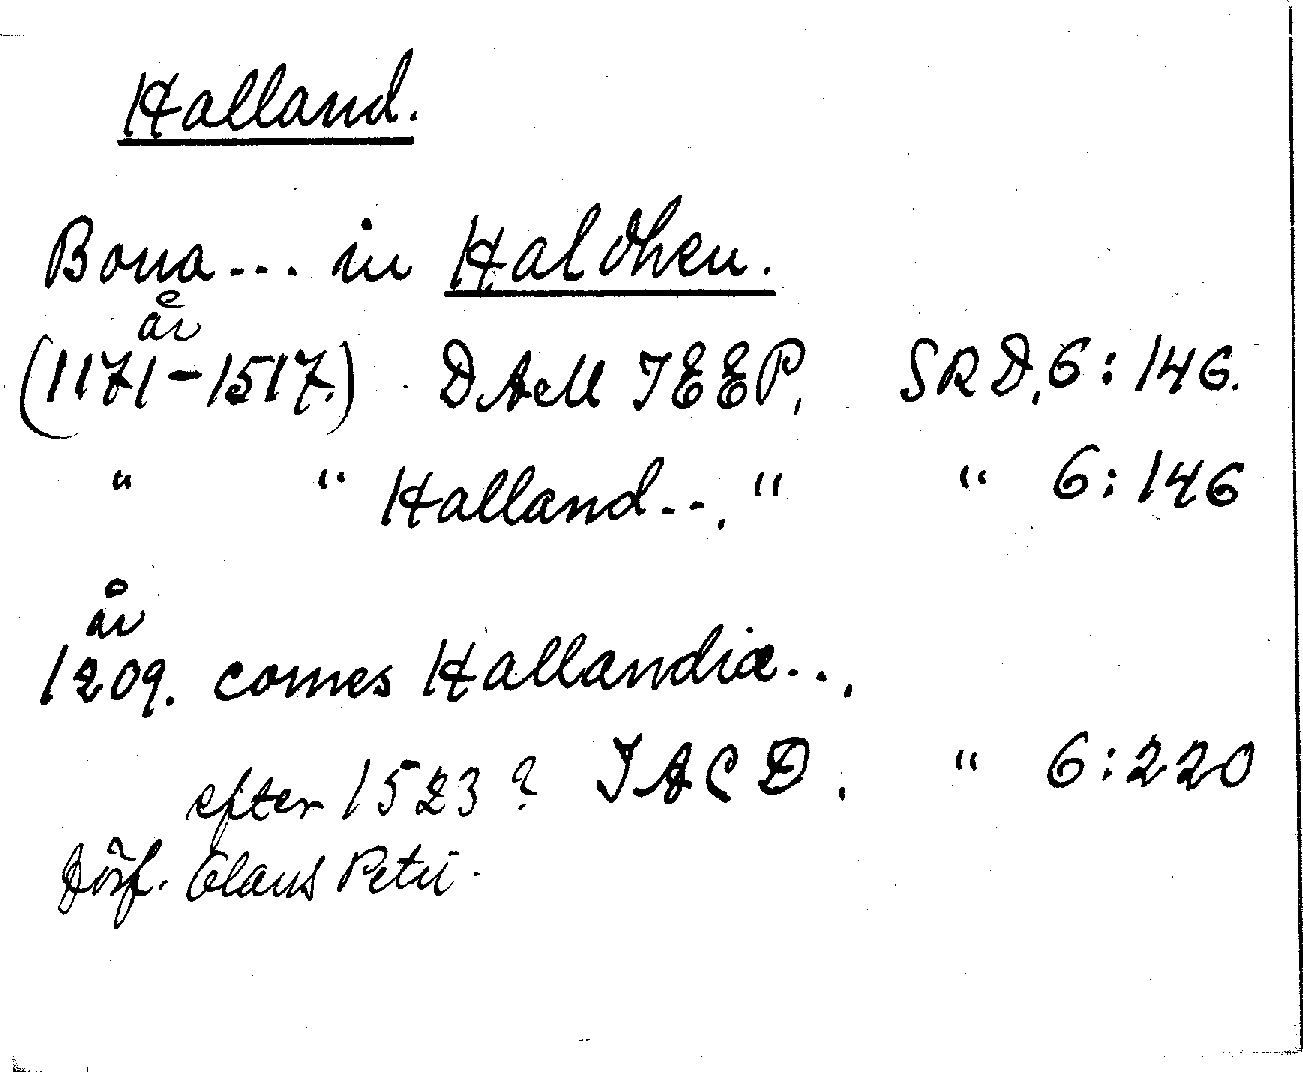 Halland.
Bona... in Haldhen.
år
(1171-1517.) DAeM TEEP, SRD, 6:146.
" " Halland..., " " 6:146
år
1209. comes Hallandiæ...,
efter 1523? TACD, " 6:220
förf. Olaus Petri.